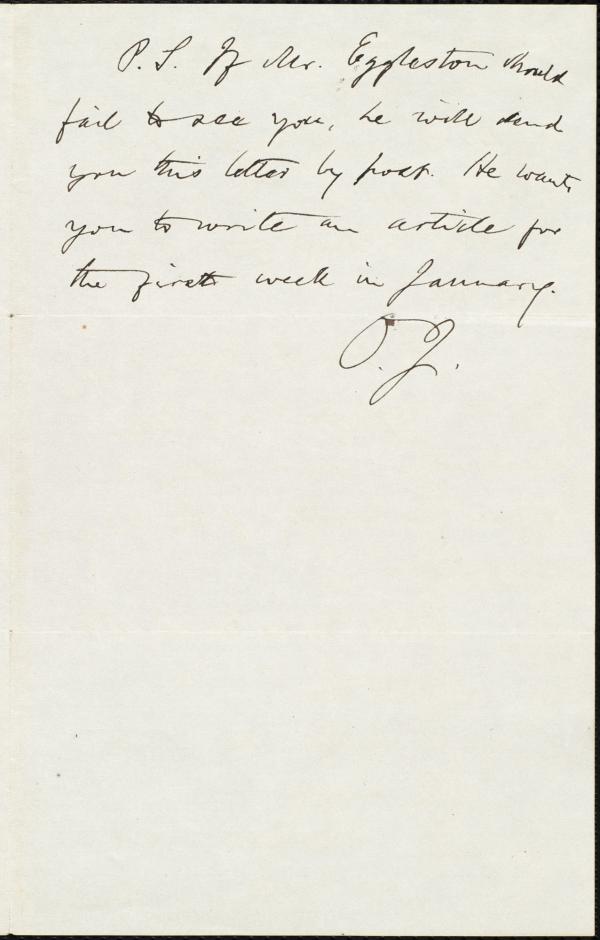 P.S. If Mr. Eggleston should
fail to see you, he will send
you this letter by post. He wants
you to write an article for
the first week in January.
O.J.